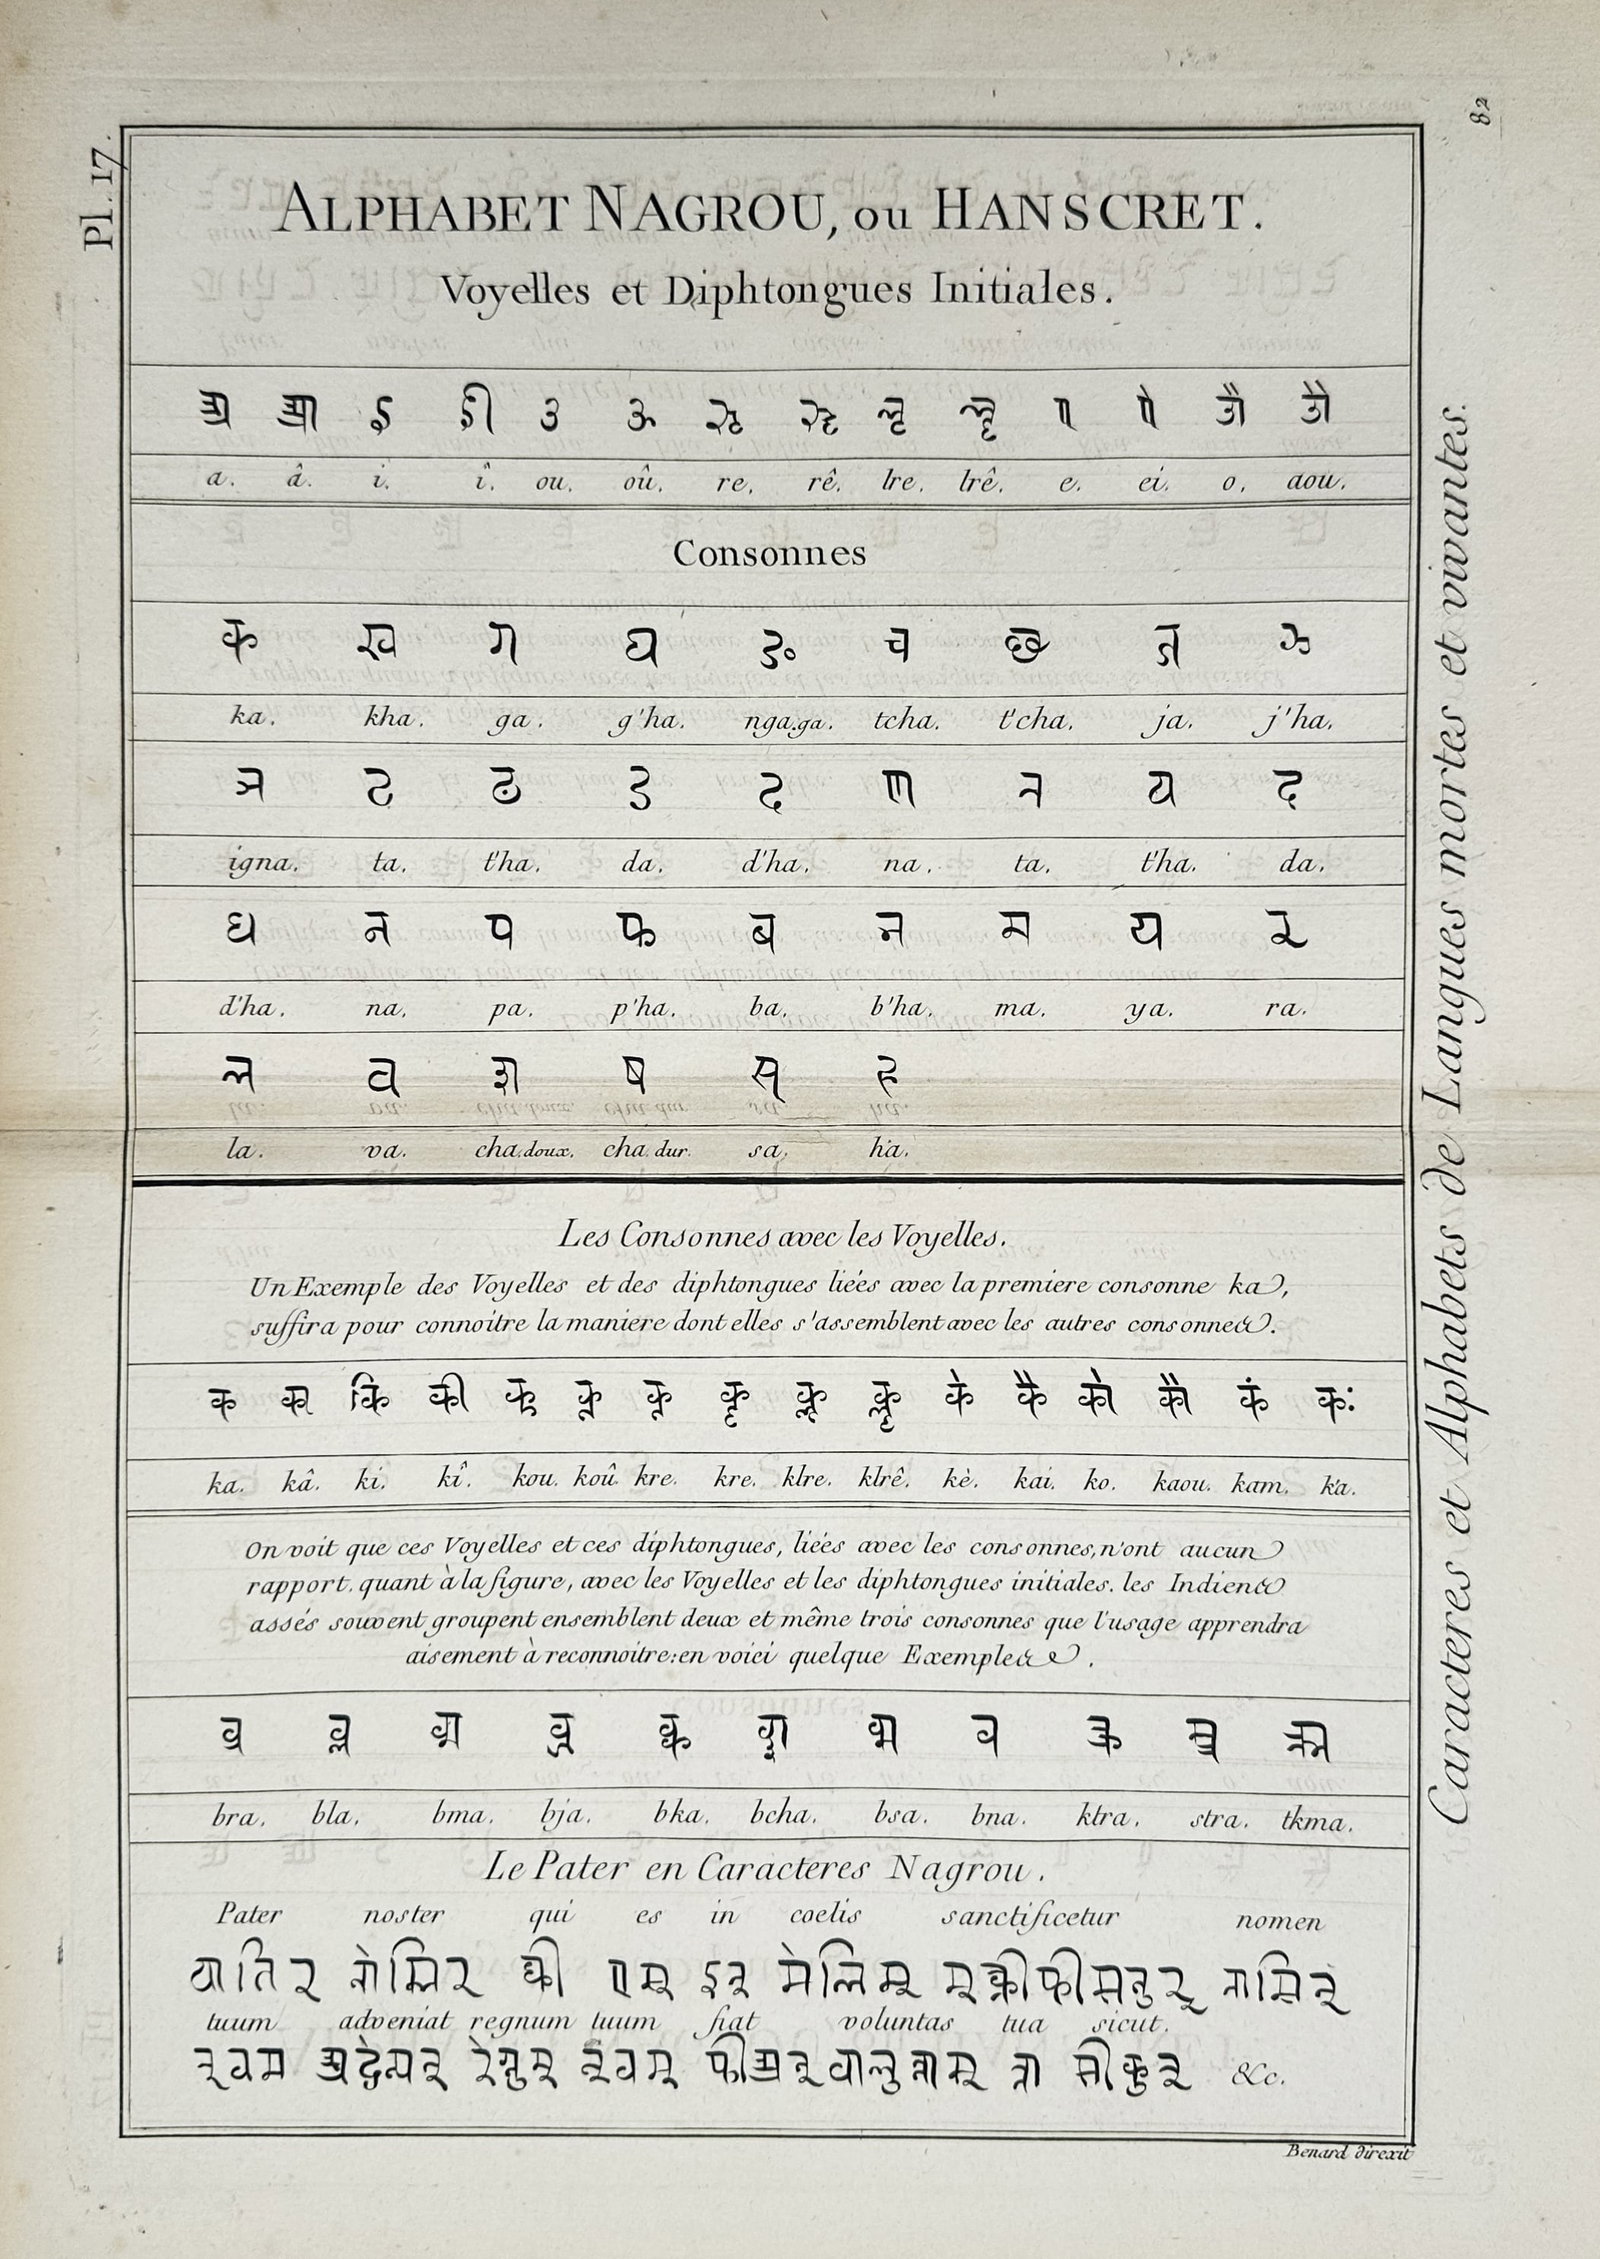 82
Pl. 17.
ALPHABET NAGROU, ou HANSCRET.
Voyelles et Diphtongues Initiales.
अ आ इ ई उ ऊ ऋ ॠ ऌ ॡ ए ऐ ओ औ
a. â. i. î. ou. oû. re. rê. lre. lrê. e. ei. o. aou.
Consonnes
क ख ग घ ङ च छ ज झ
ka. kha. ga. g'ha. nga.ga. tcha. t'cha. ja. j'ha.
ञ ट ठ ड ढ ण त थ द
igna. ta. t'ha. da. d'ha. na. ta. t'ha. da.
ध न प फ ब भ म य र
d'ha. na. pa. p'ha. ba. b'ha. ma. ya. ra.
ल व श ष स ह
la. va. cha.doux. cha.dur. sa. ha.
Les Consonnes avec les Voyelles.
Un Exemple des Voyelles et des diphtongues liées avec la premiere consonne ka,
suffira pour connoitre la maniere dont elles s'assemblent avec les autres consonnes.
क का कि की कु कू कृ कॄ कॢ कॣ के कै को कौ कं कः
ka. kâ. ki. kî. kou. koû. kre. kre. klre. klrê. kè. kai. ko. kaou. kam. k'a.
On voit que ces Voyelles et ces diphtongues, liées avec les consonnes, n'ont aucun
rapport. quant à la figure, avec les Voyelles et les diphtongues initiales. les Indiens
assés souvent groupent ensemblent deux et même trois consonnes que l'usage apprendra
aisement à reconnoitre: en voici quelque Exemples.
bra. bla. bma. bja. bka. bcha. bsa. bna. ktra. stra. tkma.
Le Pater en Caracteres Nagrou.
Pater noster qui es in coelis sanctificetur nomen
tuum adveniat regnum tuum fiat voluntas tua sicut.
&c.
Benard direxit
Caracteres et Alphabets de Langues mortes et vivantes.